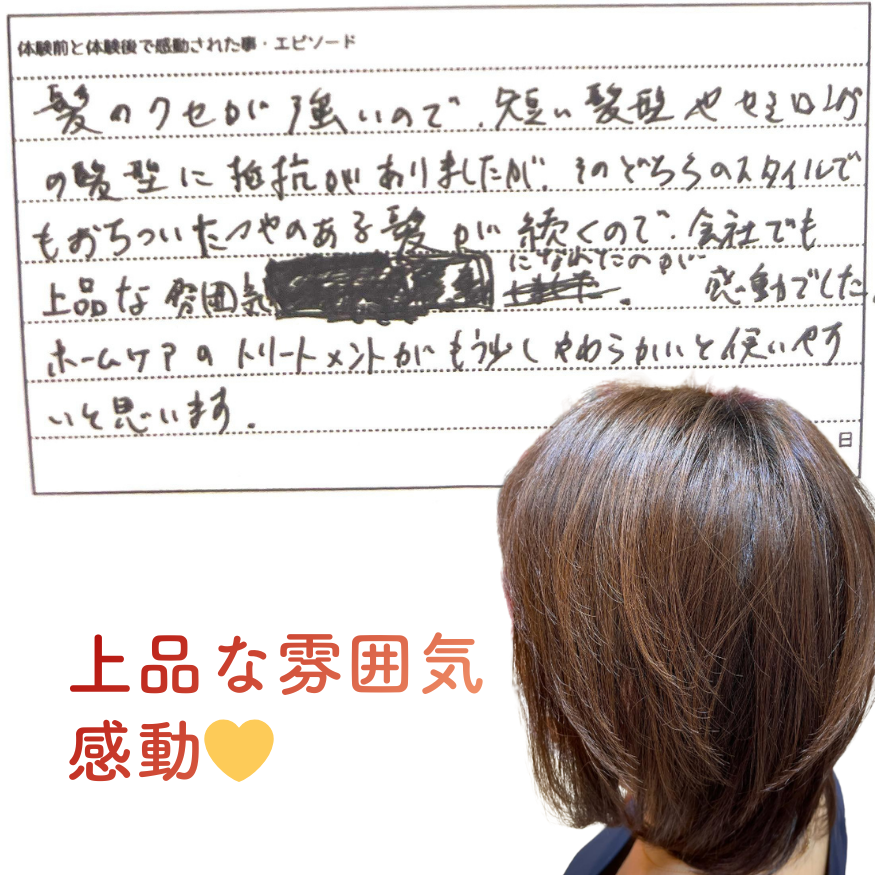 体験前と体験後で感動された事・エピソード
髪のクセが強いので、短い髪型やセミロング
の髪型に抵抗がありましたが、そのどちらのスタイルで
もおちついたつやのある髪が続くので、会社でも
になれたのが
上品な雰囲気 感動でした。
ホームケアのトリートメントがもう少しやわらかいと使いやす
いと思います。
日
上品な雰囲気
感動